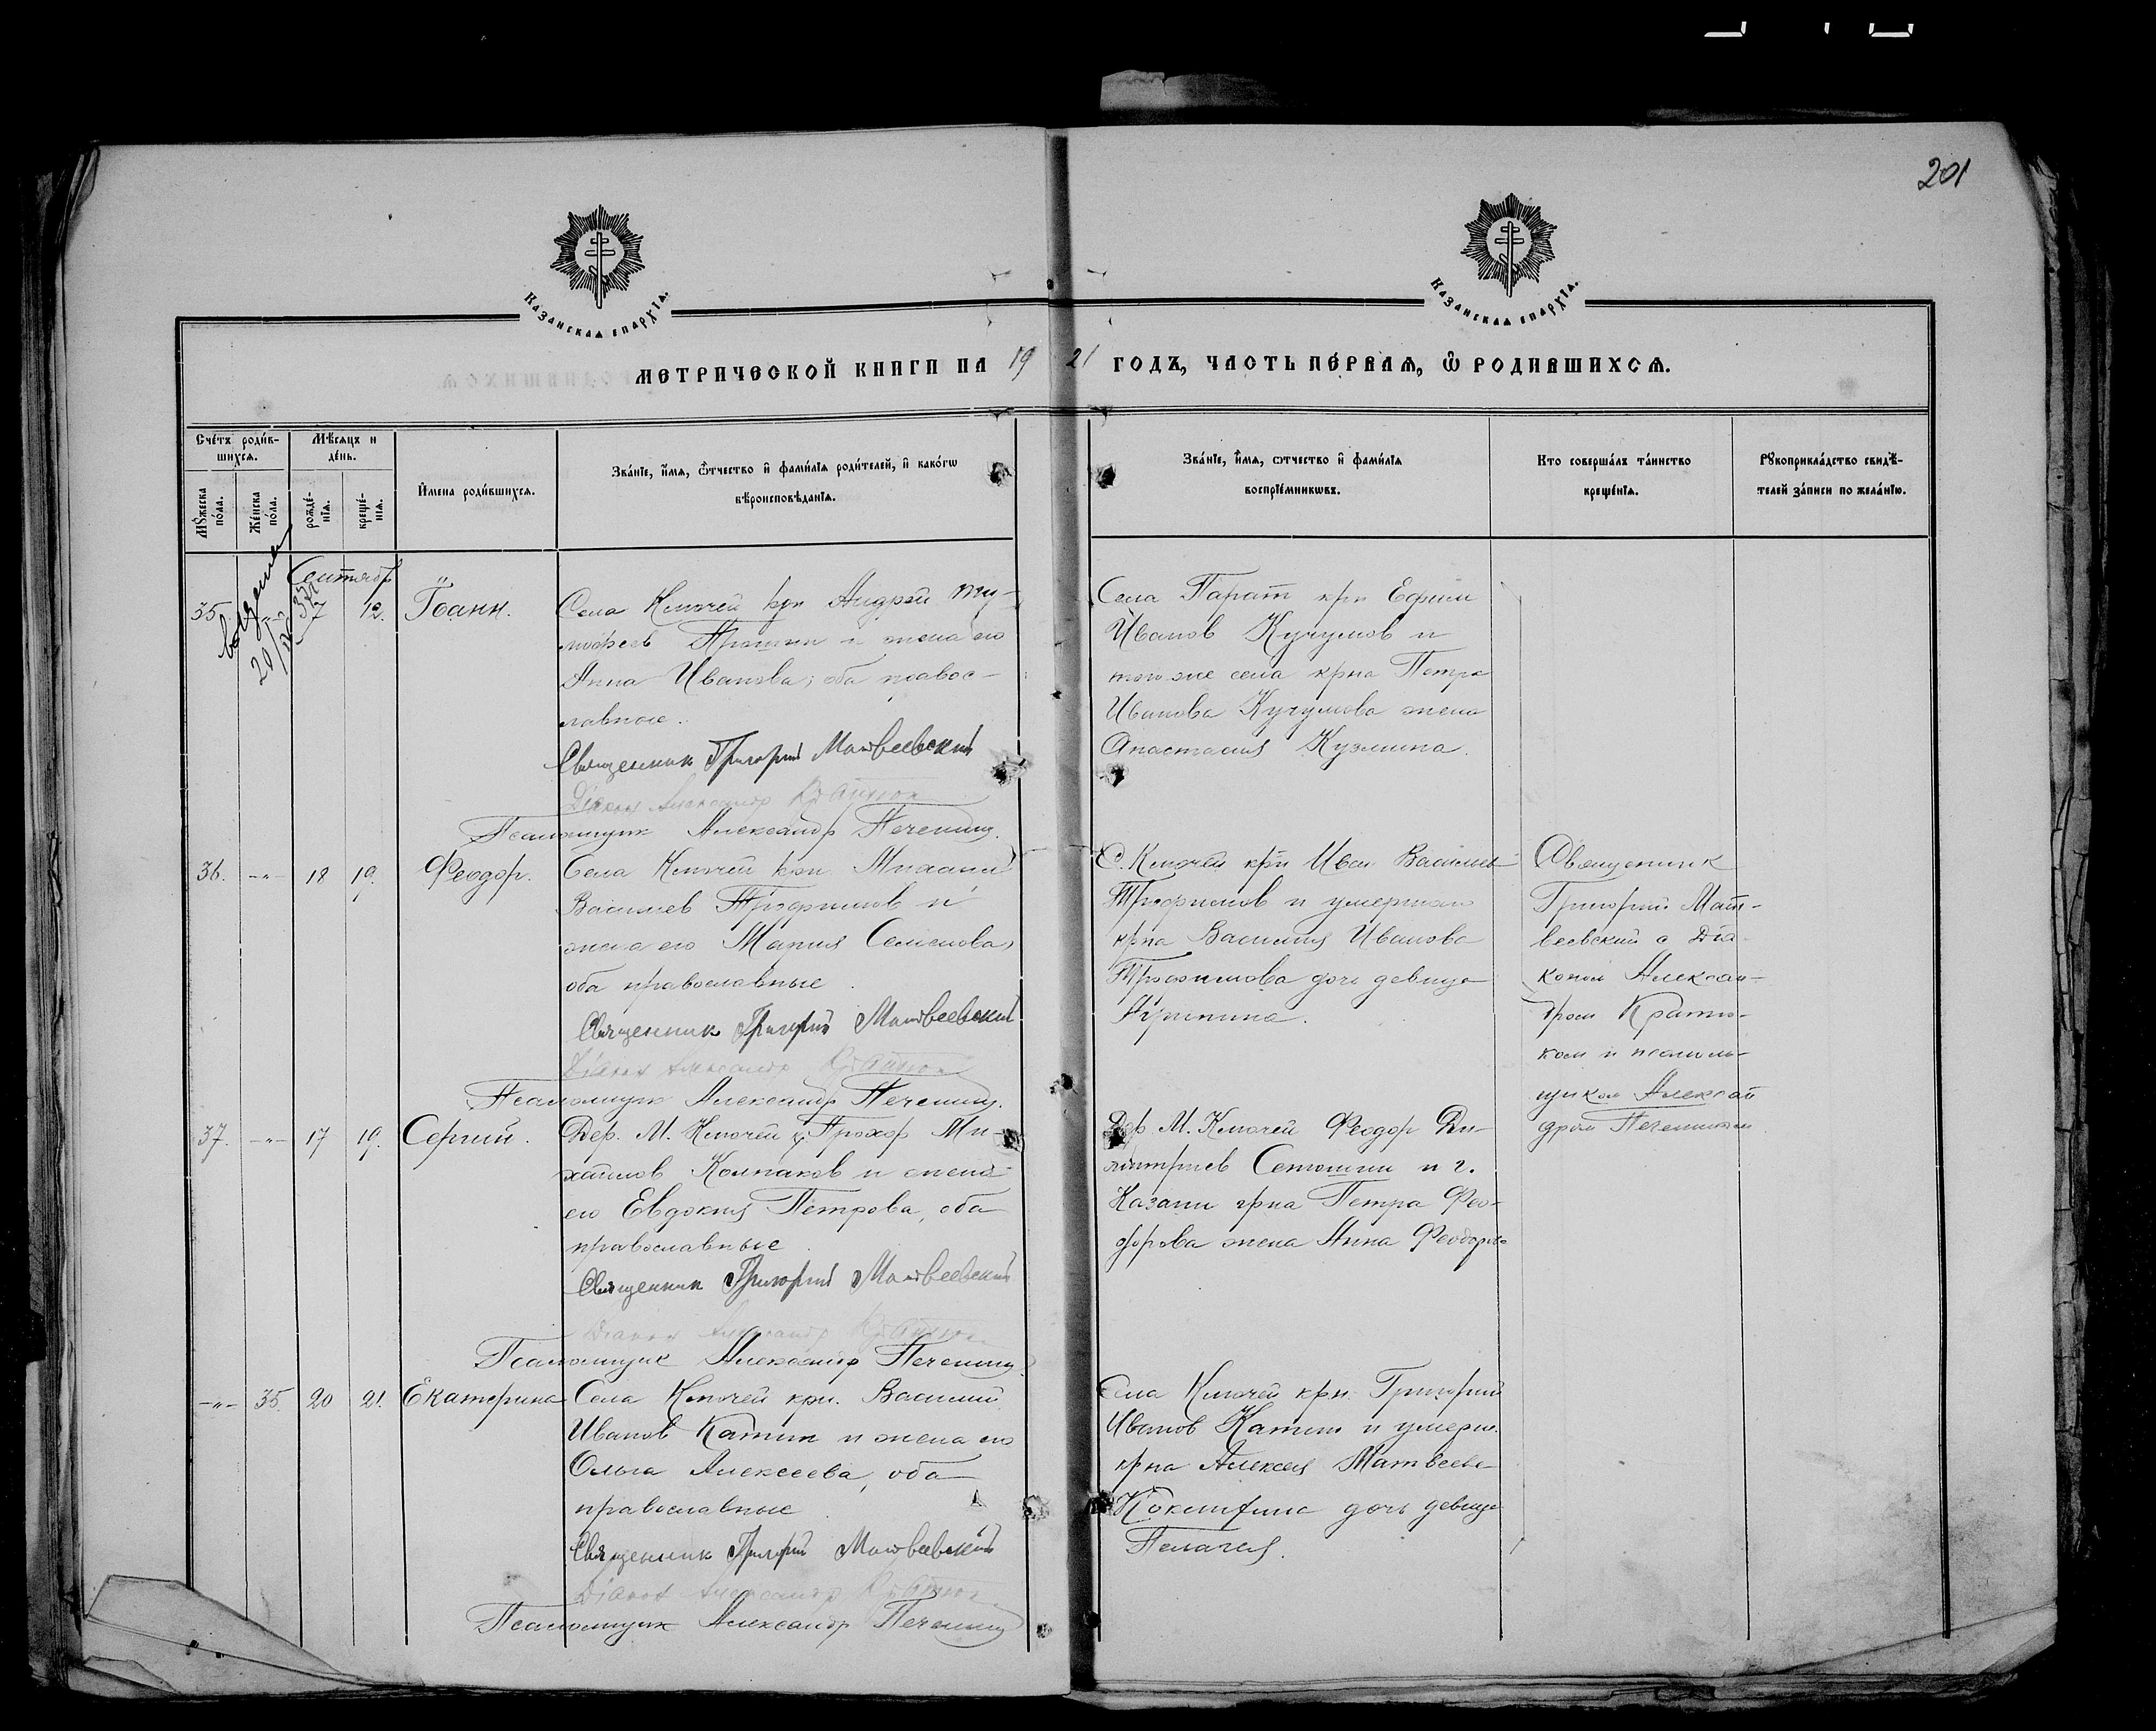 201
Казанская епархія.
Казанская епархія.
Метрической книги на 1921 годъ, часть первая, ѡ родившихся.
Счетъ родив-
шихся.
Мѣсяцъ и
день.
Мꙋжеска
пола.
Женска
пола.
рожде-
нія.
креще-
нія.
Имена родившихся.
Званіе, имя, ѿчество и фамилія родителей, и какогѡ
вѣроисповѣданія.
Званіе, имя, ѡтчество и фамилія
воспріемникѡвъ.
Кто совершалъ таинство
крещенія.
Рꙋкоприкладство свидѣ-
телей записи по желанію.
Сентябр
35. 7 12. Іоанн.
Села Ключей крн Андрей Ти-
мофеев и жена его
Анна Иванова; оба правос-
лавные.
Священник Григорий Матвеевский
Діакон Александр Кратков
Псаломщик Александр Печеницы
Села Парат крн Ефим
Иванов Кучумов и
того же села крна Петра
Иванова Кучумова жена
Анастасия Кузмина.
36. -"- 18 19. Феодор.
Села Ключей крн. Михаил
Васильев Трофимов и
жена его Мария Семенова,
оба православные.
Священник Григорий Матвеевский
Діакон Александр
Псаломщик Александр
С. Ключей крн Иван Васильев
Трофимов и умершаго
крна Василия Иванова
Трофимова дочь девица
Агрипина.
Священник
Григорий Мат-
веевский с Діа-
коном Алексан-
дром
ком и псалом-
щиком Алексан
дром
37. -"- 17 19. Сергий.
Дер. М. Ключей Прохор Ми-
хайлов Колпаков и жена
его Евдокия Петрова, оба
православные
Священник Григорий Матвеевский
Діакон Александр
Псаломщик Александр
Дер. М. Ключей Феодор Ди-
митриев и г.
Казани грна Петра Фео-
дорова жена Анна Феодоро
-"- 35. 20 21. Екатерина
Села Ключей крн. Василий
Иванов Катин и жена его
Ольга Алексеева, оба
православные.
Священник Григорий Матвеевский
Діакон Александр
Псаломщик Александр
Села Ключей крн. Григорий
Иванов Катин и умерш.
крна Алексея Матвеева
дочь девица
Пелагея.